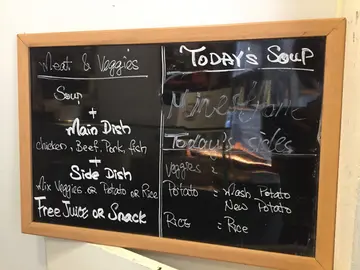 Meat & Veggies
Soup
+
Main Dish
chicken, Beef, Pork, fish
+
Side Dish
Mix Veggies or Potato or Rice
Free Juice or Snack
Today's Soup
Minestrone
Today's sides
Veggies =
Potato = Mash Potato
New Potato
Rice = Rice